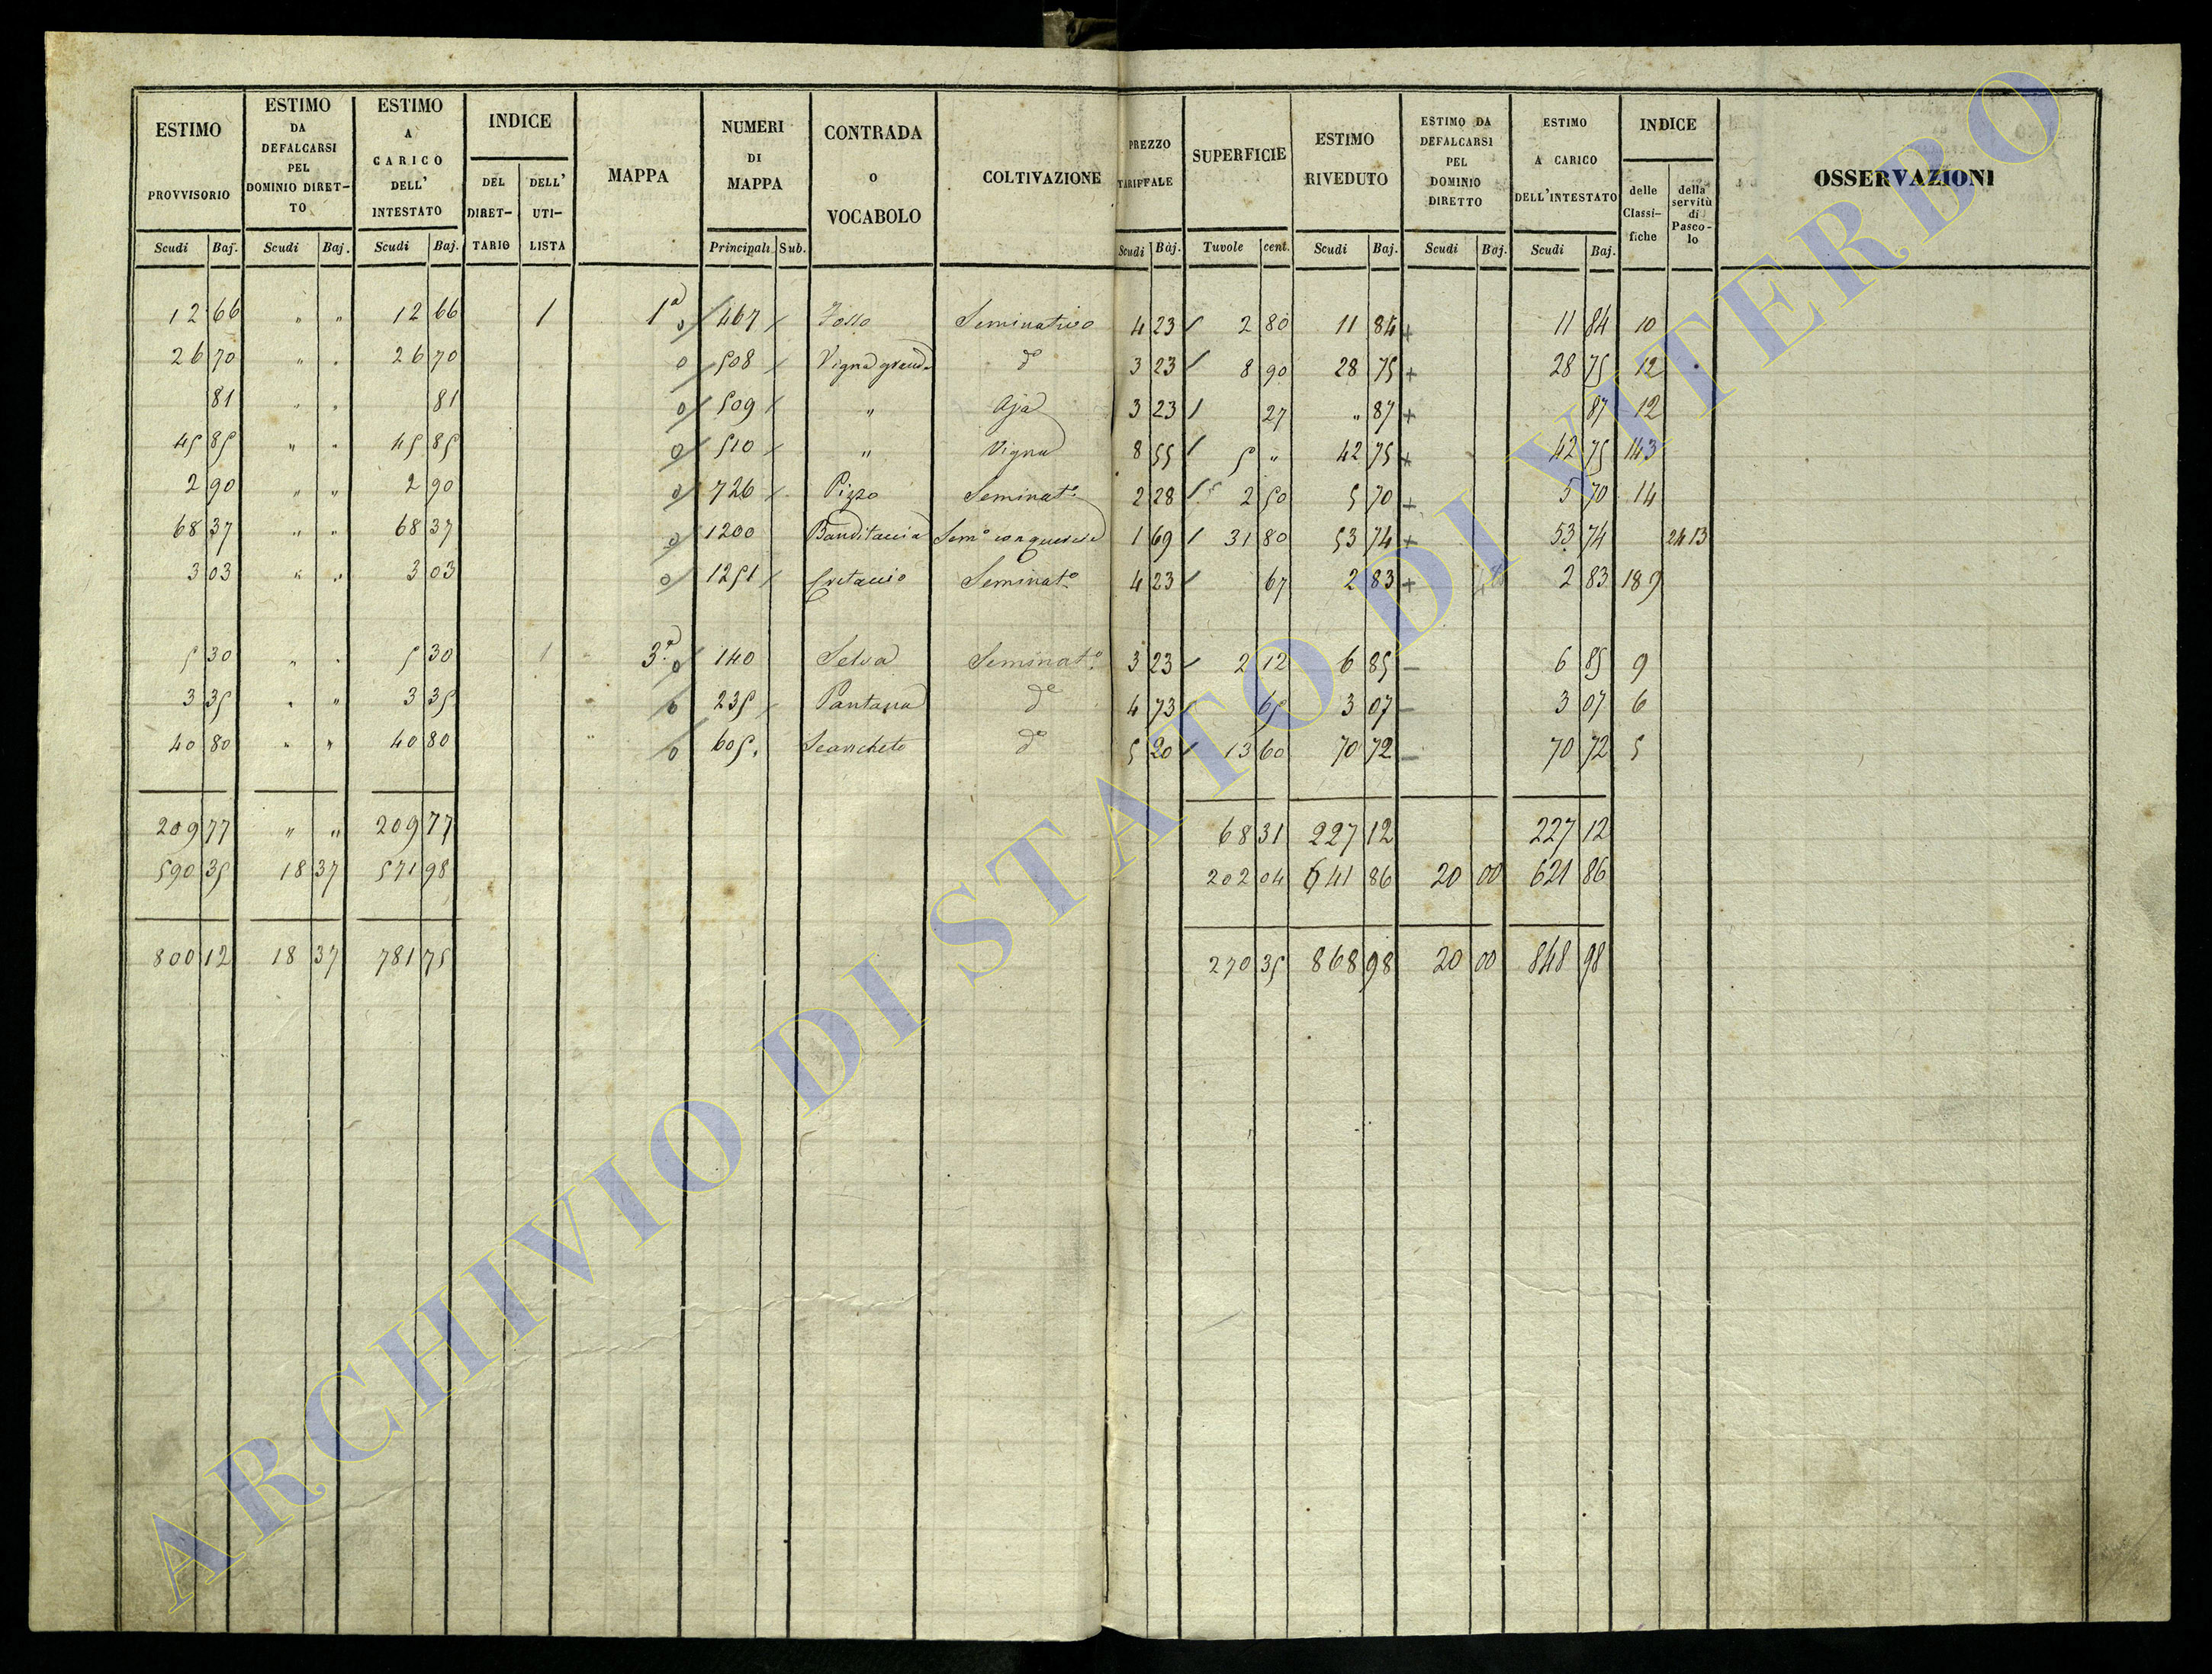 ESTIMO PROVVISORIO Scudi Baj.
ESTIMO DA DEFALCARSI PEL DOMINIO DIRET- TO Scudi Baj.
ESTIMO A CARICO DELL' INTESTATO Scudi Baj.
INDICE DEL DIRET- TARIO DELL' UTI- LISTA
MAPPA
NUMERI DI MAPPA Principali Sub.
CONTRADA O VOCABOLO
COLTIVAZIONE
PREZZO TARIFFALE Scudi Baj.
SUPERFICIE Tuvole cent.
ESTIMO RIVEDUTO Scudi Baj.
ESTIMO DA DEFALCARSI PEL DOMINIO DIRETTO Scudi Baj.
ESTIMO A CARICO DELL'INTESTATO Scudi Baj.
INDICE delle Classi- fiche della servitù di Pasco- lo
OSSERVAZIONI
12 66 " " 12 66 1 1a 0 467 Seminativo 4 23 2 80 11 84 + 11 84 10
26 70 " " 26 70 0 508 Vigna grande do 3 23 8 90 28 75 + 28 75 12
81 " " 81 0 509 " Aja 3 23 27 " 87 + 87 12
45 85 " " 45 85 0 510 " Vigna 8 55 5 " 42 75 + 42 75 143
2 90 " " 2 90 0 726 Pizzo Seminato 2 28 2 50 5 70 + 5 70 14
68 37 " " 68 37 0 1200 Banditaccia Semo con querce 1 69 31 80 53 74 + 53 74 24 13
3 03 " " 3 03 0 1251 Cretaccio Seminato 4 23 67 2 83 + 2 83 189
5 30 " " 5 30 1 3a 0 140 Selva Seminato 3 23 2 12 6 85 - 6 85 9
3 35 " " 3 35 0 235 Pantana do 4 73 65 3 07 - 3 07 6
40 80 " " 40 80 0 605 Scancheto do 5 20 13 60 70 72 - 70 72 5
209 77 " " 209 77 68 31 227 12 227 12
590 35 18 37 571 98 202 04 641 86 20 00 621 86
800 12 18 37 781 75 270 35 868 98 20 00 848 98
ARCHIVIO DI STATO DI VITERBO